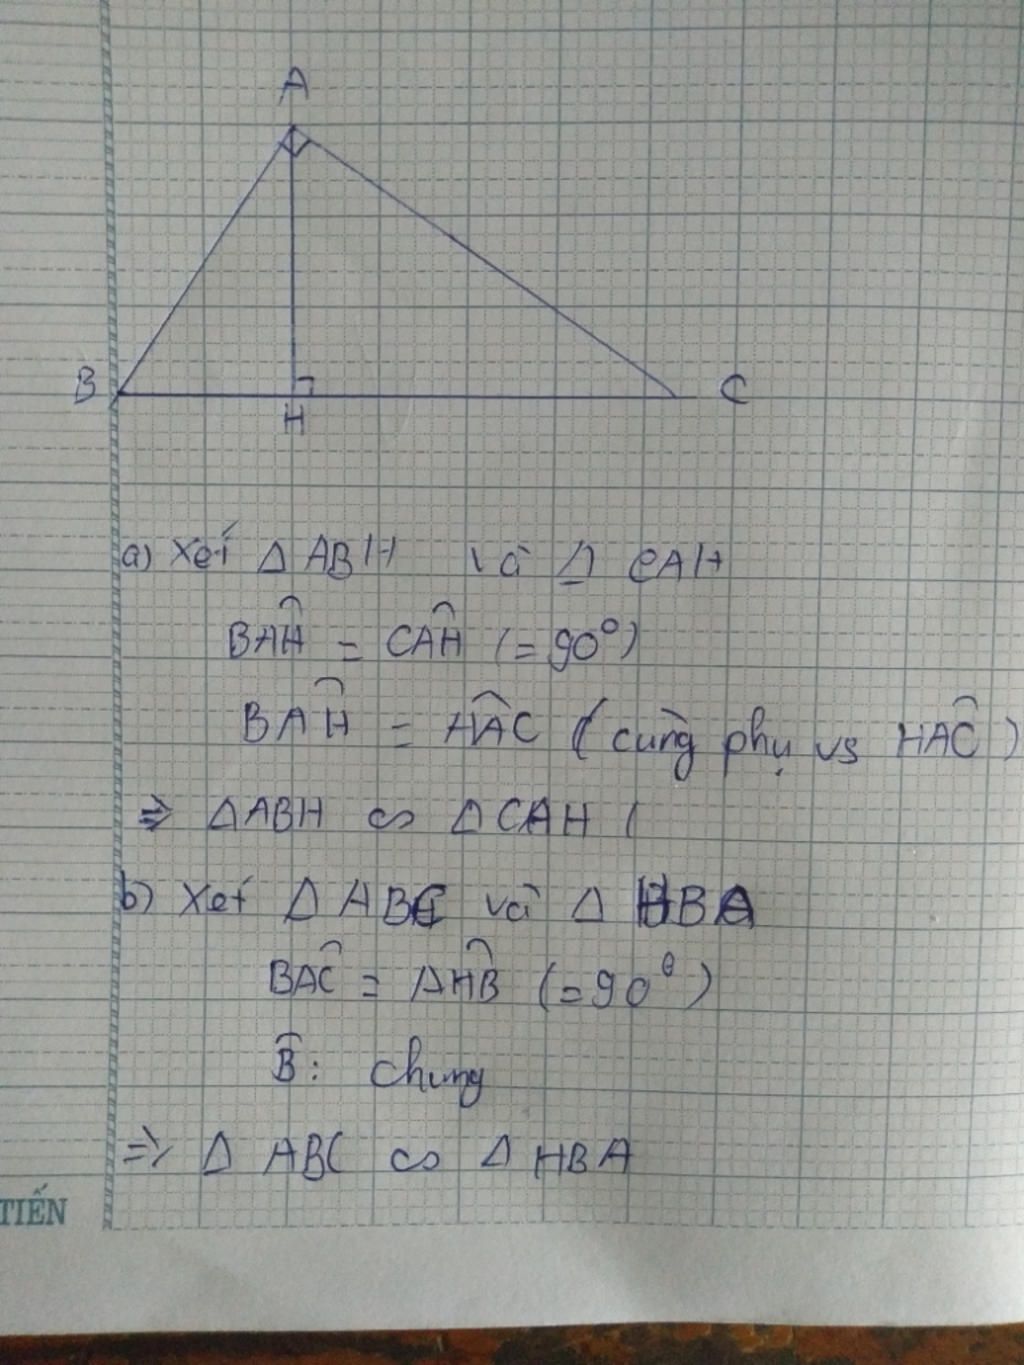 A
B
H
C
a) Xét Δ ABH và Δ CAH
BAĤ = CAĤ (= 90°)
BAĤ = HÂC (cùng phụ vs HAĈ)
⇒ ΔABH ∽ ΔCAH (
b) Xét Δ ABC và Δ HBA
BAĈ = AHB̂ (= 90°)
B̂: chung
⇒ Δ ABC ∽ Δ HBA
TIẾN